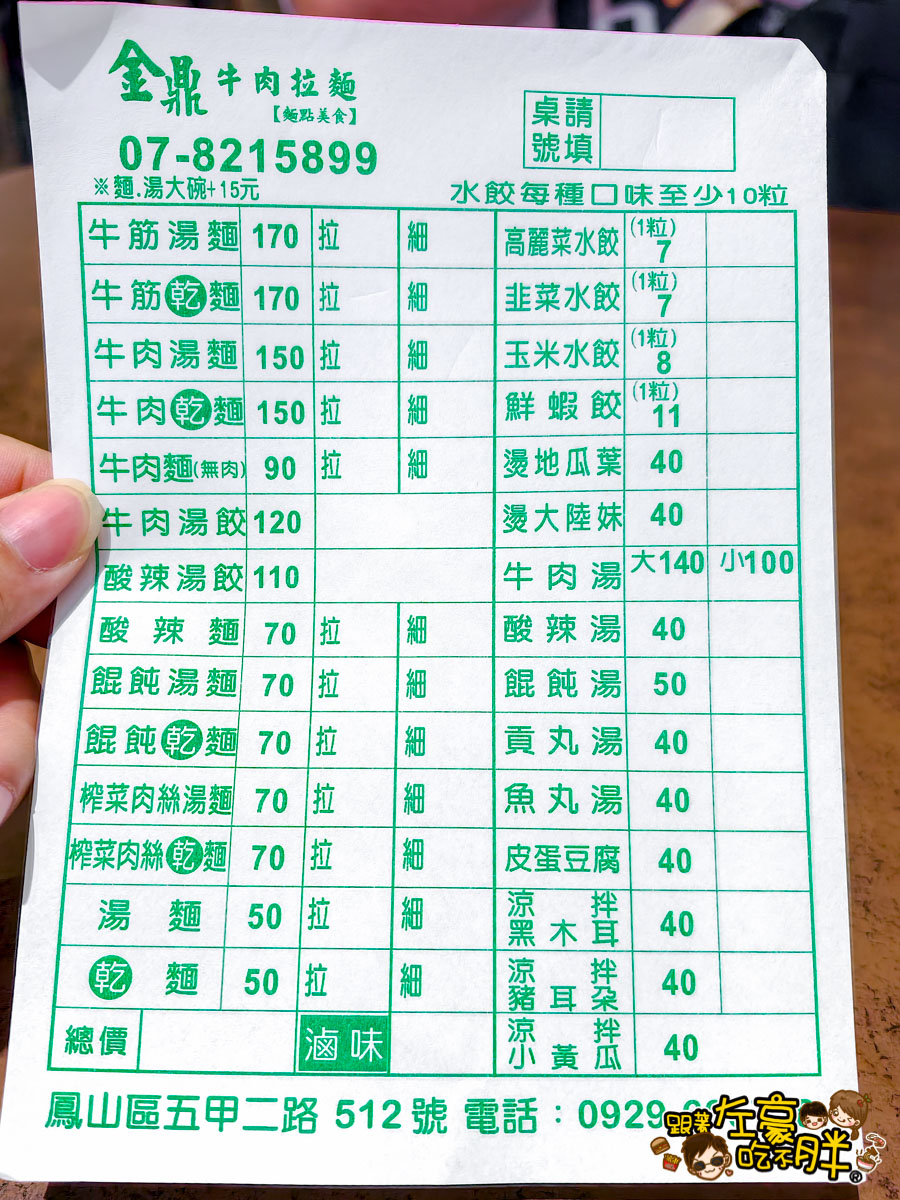 金鼎牛肉拉麵
【麵點美食】
07-8215899
桌號請填
※麵.湯大碗+15元
水餃每種口味至少10粒
牛筋湯麵 170 拉 細 高麗菜水餃 (1粒) 7
牛筋乾麵 170 拉 細 韭菜水餃 (1粒) 7
牛肉湯麵 150 拉 細 玉米水餃 (1粒) 8
牛肉乾麵 150 拉 細 鮮蝦餃 (1粒) 11
牛肉麵(無肉) 90 拉 細 燙地瓜葉 40
牛肉湯餃 120 燙大陸妹 40
酸辣湯餃 110 牛肉湯 大140 小100
酸辣麵 70 拉 細 酸辣湯 40
餛飩湯麵 70 拉 細 餛飩湯 50
餛飩乾麵 70 拉 細 貢丸湯 40
榨菜肉絲湯麵 70 拉 細 魚丸湯 40
榨菜肉絲乾麵 70 拉 細 皮蛋豆腐 40
湯麵 50 拉 細 涼拌黑木耳 40
乾麵 50 拉 細 涼拌豬耳朶 40
總價 滷味 涼拌小黃瓜 40
鳳山區五甲二路 512號 電話：0929
跟著左豪吃不胖®